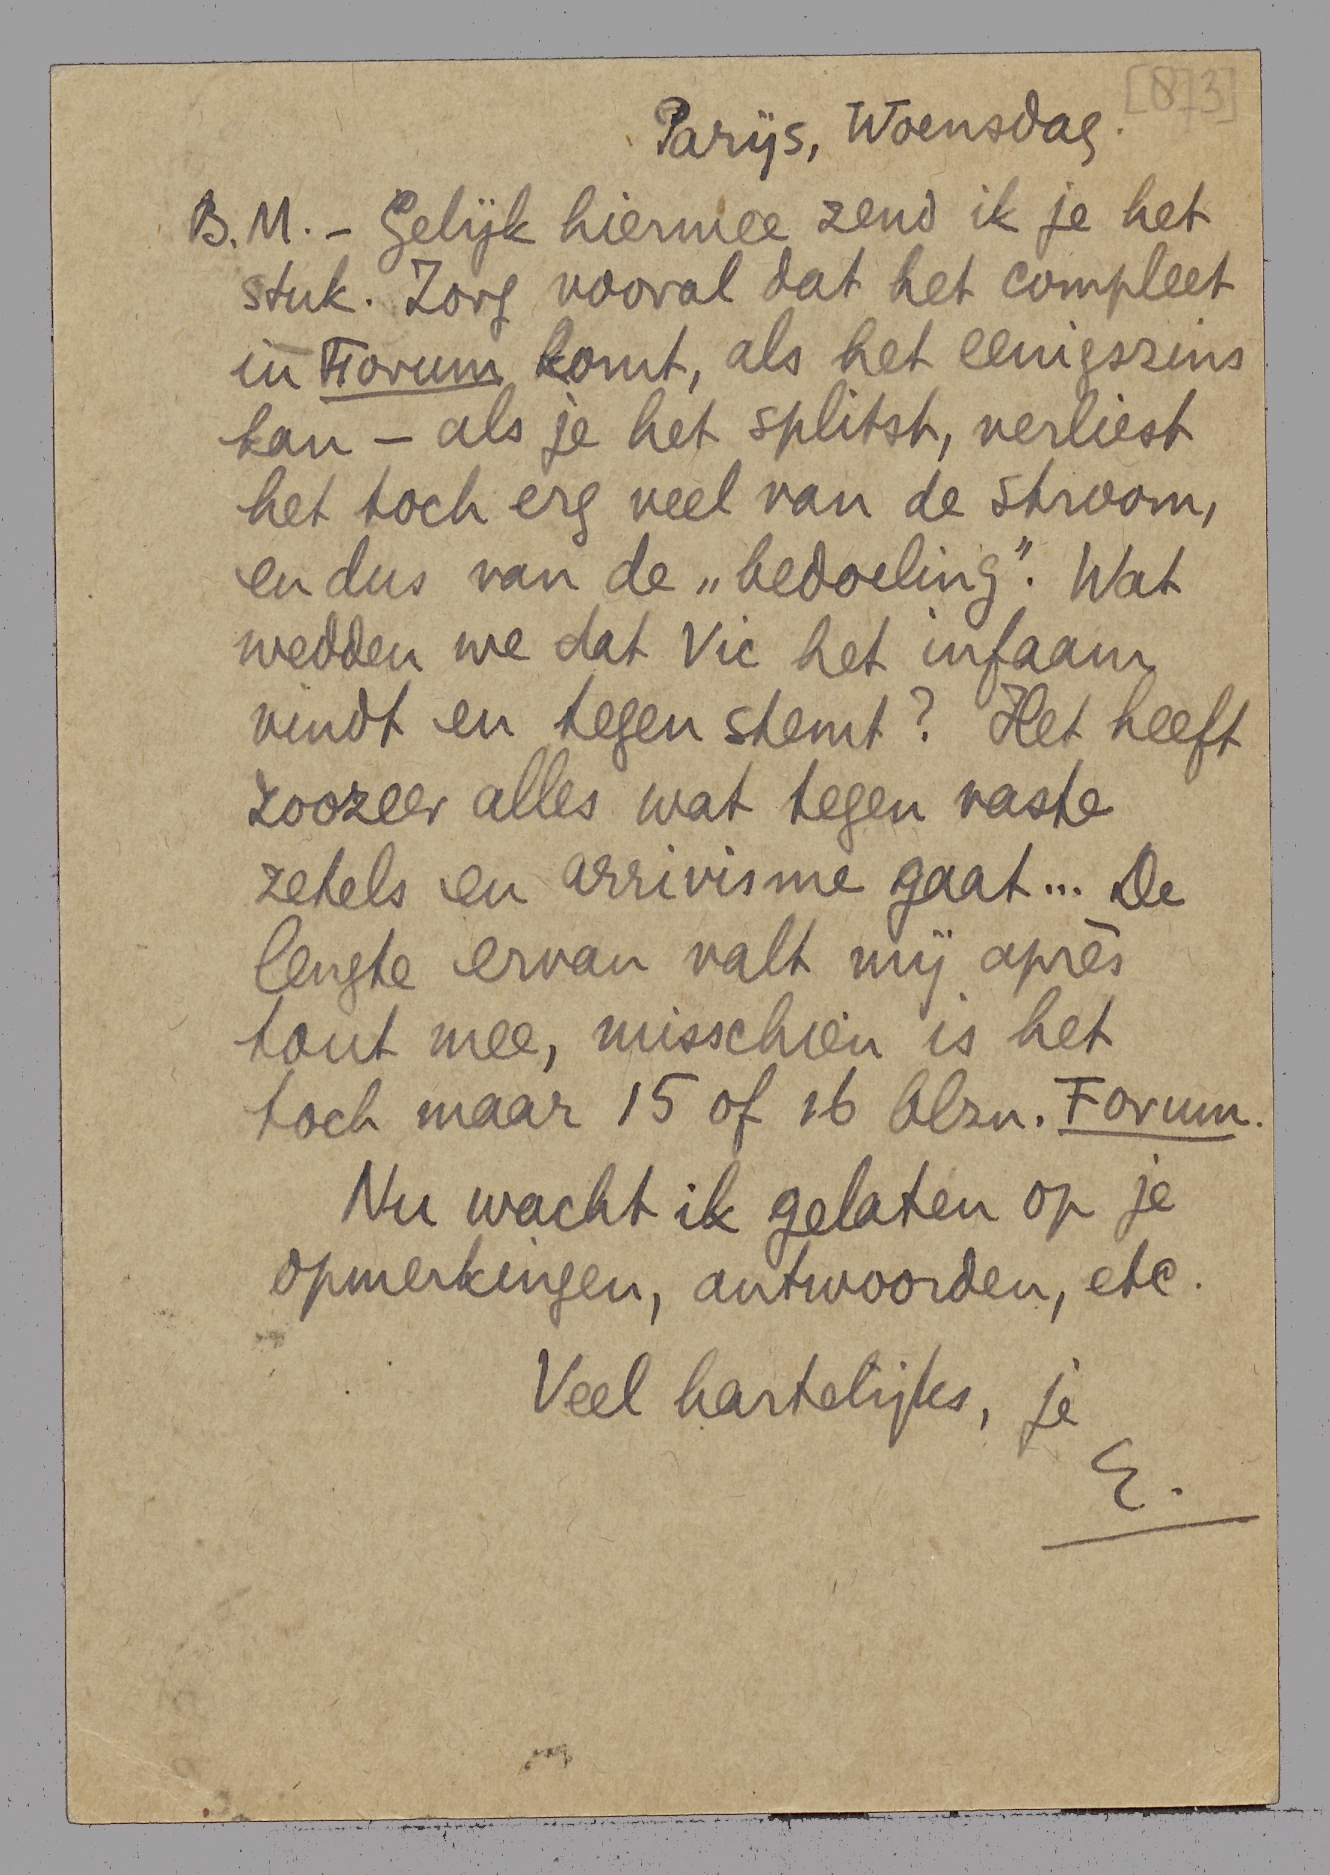 [873]
Parijs, Woensdag.
B.M. – Gelijk hiermee zend ik je het
stuk. Zorg vooral dat het compleet
in Forum komt, als het eenigszins
kan – als je het splitst, verliest
het toch erg veel van de stroom,
en dus van de „bedoeling”. Wat
wedden we dat Vic het infaam
vindt en tegen stemt? Het heeft
zoozeer alles wat tegen vaste
zetels en arrivisme gaat... De
lengte ervan valt mij après
tout mee, misschien is het
toch maar 15 of 16 blzn. Forum.
Nu wacht ik gelaten op je
opmerkingen, antwoorden, etc.
Veel hartelijks, je
E.